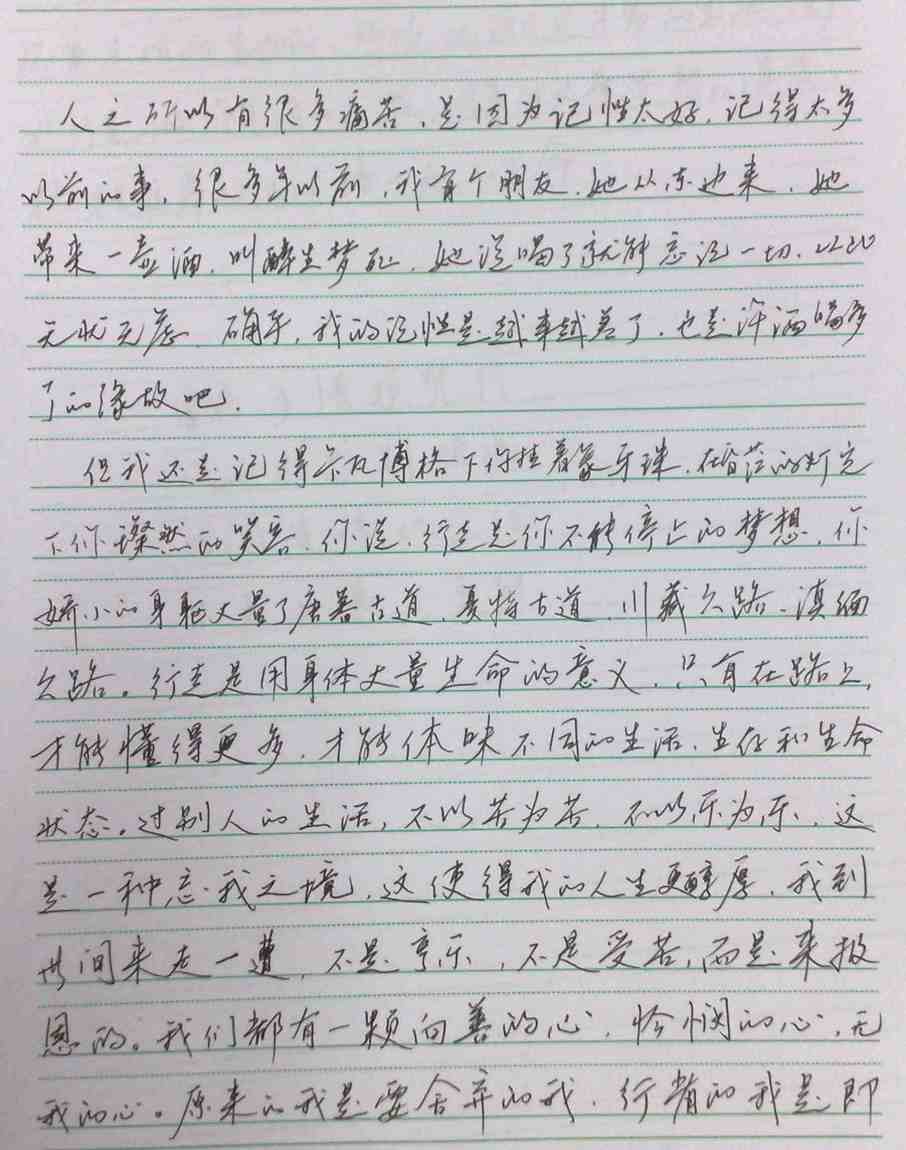 人之所以有很多痛苦，是因为记性太好，记得太多
以前的事，很多年以前，我有个朋友，她从东边来，她
带来一壶酒，叫醉生梦死，她说喝了就能忘记一切，以致
无状无态，确乎，我的记性是越来越差了，也是许酒喝多
了的缘故吧。
但我还是记得 瓦博格下你挂着象牙珠，在昏 的灯光
下你璨然的笑容，你说，行走是你不能停止的梦想，你
娇小的身躯丈量了唐蕃古道，夏特古道，川藏公路，滇缅
公路。行走是用身体丈量生命的意义，只有在路上，
才能懂得更多，才能体味不同的生活，生存和生命
状态。过别人的生活，不以苦为苦，不以乐为乐，这
是一种忘我之境，这使得我的人生更醇厚，我到
世间来走一遭，不是享乐，不是受苦，而是来报
恩的。我们都有一颗向善的心，怜悯的心，无
我的心。原来的我是要舍弃的我，行者的我是即